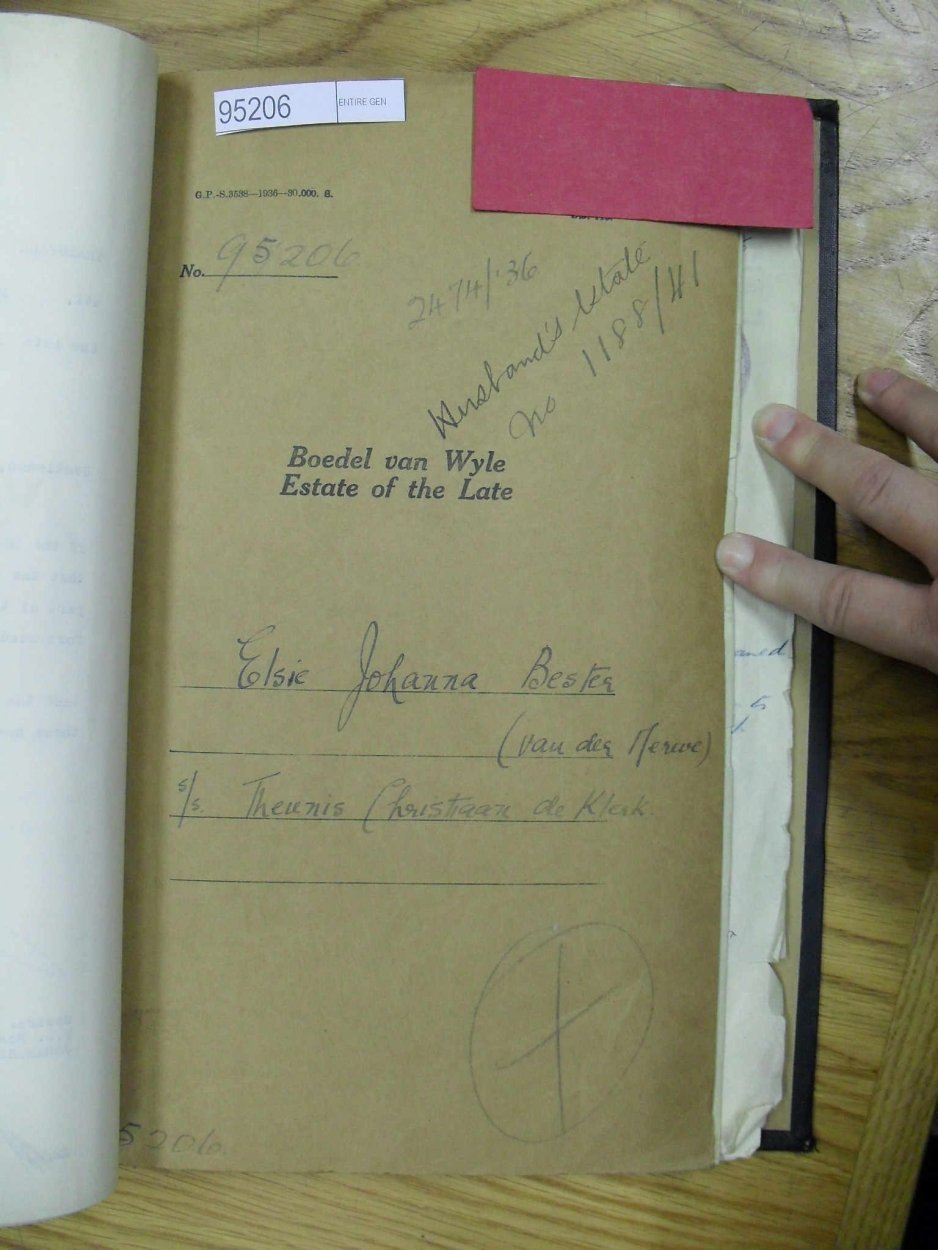 95206 ENTIRE GEN
G.P.-S.3538—1936—30,000. S.
No. 95206
2474/36
Husband's Estate
No 1188/41
Boedel van Wyle
Estate of the Late
Elsie Johanna Bester
(van der Merwe)
s/s. Theunis Christiaan de Klerk.
5206.